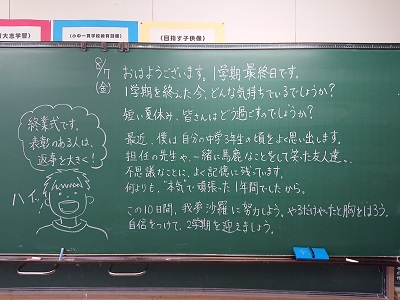 大志学習】
《小中一貫学校教育目標》
《目指す子供像》
8/7
(金)
おはようございます。1学期最終日です。
1学期を終えた今、どんな気持ちでいるでしょうか?
短い夏休み、皆さんはどう過ごすのでしょうか?
最近、僕は自分の中学3年生の頃をよく思い出します。
担任の先生や、一緒に馬鹿なことをして笑った友人達。。
不思議なことに、よく記憶に残っています。
何よりも、"本気"で頑張った1年間でしたから。
この10日間、我夢沙羅に努力しよう。やるだけやったと胸をはろう。
自信をつけて、2学期を迎えましょう。
終業式です。
表彰のある人は、
返事を大きく!
ハイッ!